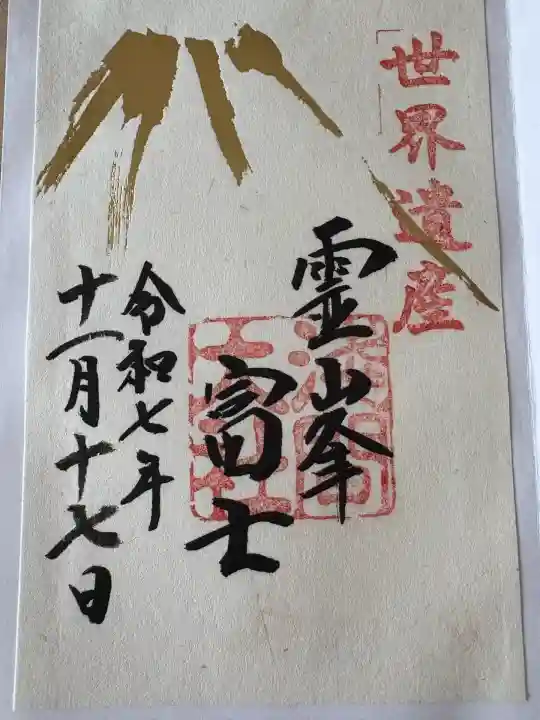 世界遺産
霊峯
富士
令和七年
十一月十七日